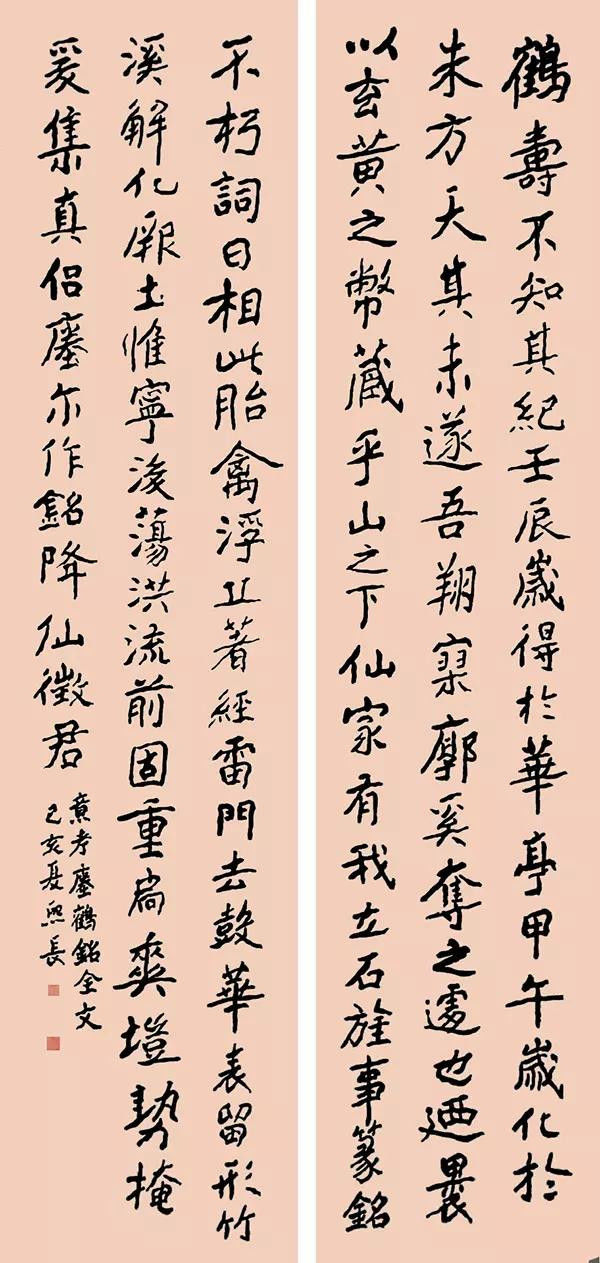 鶴壽不知其紀壬辰歲得於華亭甲午歲化於
朱方天其未遂吾翔寥廓奚奪之遽也廼裹
以玄黃之幣藏乎山之下仙家有我立石旌事篆銘
不朽詞曰相此胎禽浮丘著經雷門去鼓華表留形竹
溪解化厥土惟寧後蕩洪流前固重扃爽塏勢掩
爰集真侶瘞尔作銘降仙徵君
考瘞鶴銘全文
己亥夏長